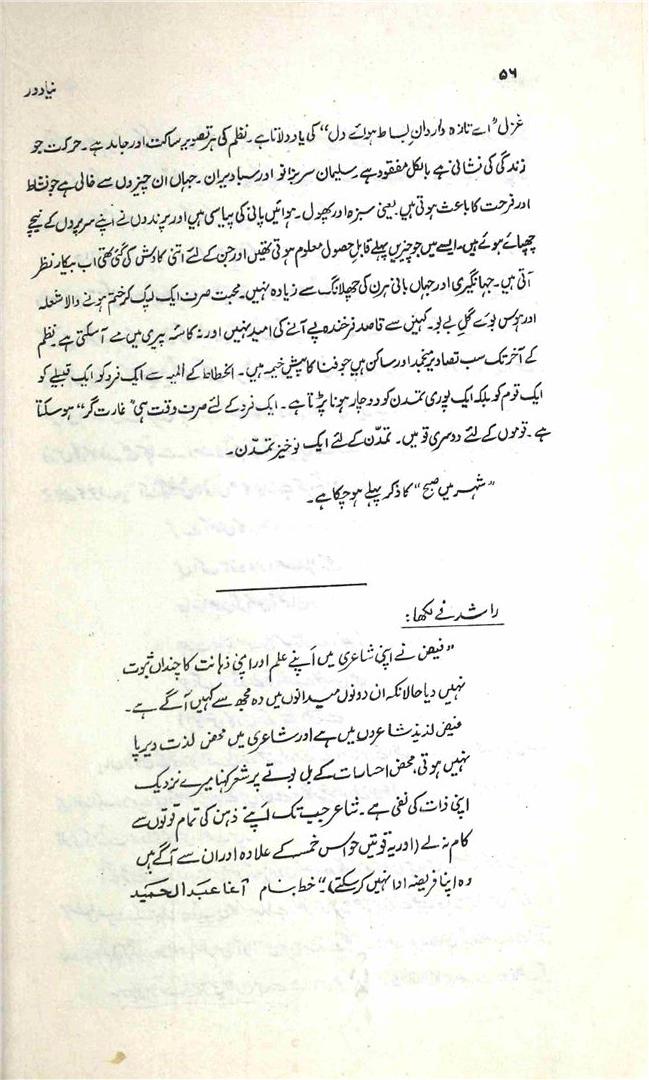 ۵۶
نیا دور
غزل "اے تازہ واردانِ بساط ہوائے دل" کی یاد دلاتا ہے۔ نظم کی ہر تصویر ساکت اور جامد ہے۔ حرکت جو
زندگی کی نشانی ہے بالکل مفقود ہے۔ سلیمان سر بزانو اور سبا ویران۔ جہاں ان چیزوں سے خالی ہے جو نشاط
اور فرحت کا باعث ہوتی ہیں۔ یعنی سبزہ اور پھول۔ ہوائیں پانی کی پیاسی ہیں اور پرندوں نے اپنے سر پروں کے نیچے
چھپائے ہوئے ہیں۔ ایسے میں جو چیزیں پہلے قابلِ حصول معلوم ہوتی تھیں اور جن کے لئے اتنی کاوش کی گئی تھی اب بیکار نظر
آتی ہیں۔ جہانگیری اور جہاں بانی ہرن کی چھلانگ سے زیادہ نہیں۔ محبت صرف ایک لپک کر ختم ہونے والا شعلہ
اور ہوس بوئے گل بے بو۔ کہیں سے قاصد فرخندہ پے آنے کی امید نہیں اور نہ کاسۂ پیری میں مے آ سکتی ہے۔ نظم
کے آخر تک سب تصاویر منجمد اور ساکن ہیں جو فنا کا پیش خیمہ ہیں۔ انحطاط کے المیہ سے ایک فرد کو ایک قبیلے کو
ایک قوم کو بلکہ ایک پوری تمدن کو دوچار ہونا پڑتا ہے۔ ایک فرد کے لئے صرف وقت ہی "غارت گر" ہو سکتا
ہے۔ قوموں کے لئے دوسری قومیں۔ تمدّن کے لئے ایک نوخیز تمدّن۔
"شہر میں صبح" کا ذکر پہلے ہو چکا ہے۔
راشد نے لکھا:
"فیض نے اپنی شاعری میں اپنے علم اور اپنی ذہانت کا چنداں ثبوت
نہیں دیا حالانکہ ان دونوں میدانوں میں وہ مجھ سے کہیں آگے ہے۔
فیض لذیذ شاعروں میں ہے اور شاعری میں محض لذت دیرپا
نہیں ہوتی، محض احساسات کے بل بوتے پر شعر کہنا میرے نزدیک
اپنی ذات کی نفی ہے۔ شاعر جب تک اپنے ذہن کی تمام قوتوں سے
کام نہ لے (اور یہ قوتیں حواس خمسہ کے علاوہ اور ان سے آگے ہیں
وہ اپنا فریضہ ادا نہیں کر سکتے)۔" خط بنام آغا عبدالحمید